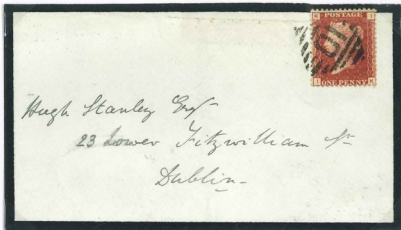 K POSTAGE I
I ONE PENNY K
Hugh Stanley Esqr
23 Lower Fitzwilliam St
Dublin